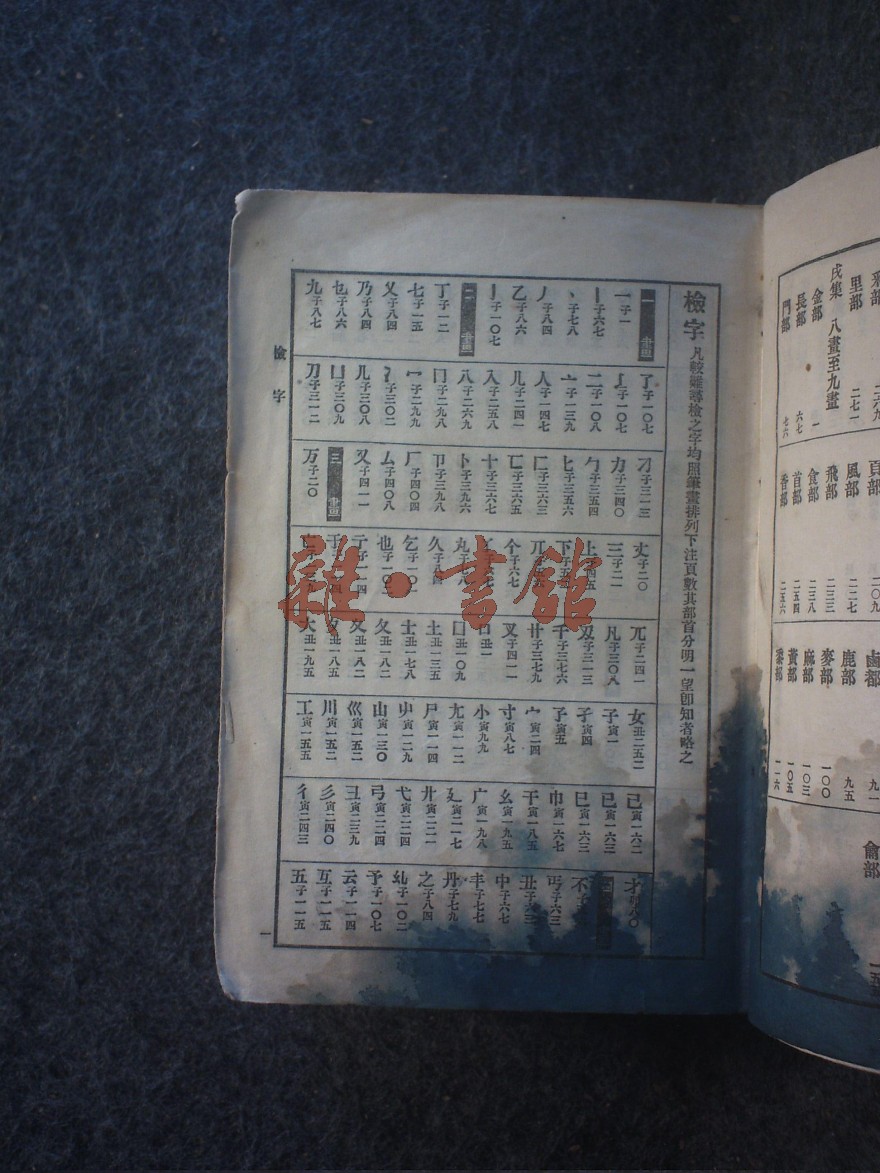 檢字 凡較難尋檢之字均照筆畫排列下注頁數其部首分明一望卽知者略之
一畫
一子一
丨子六七
丶子七八
丿子八四
乙子八六
亅子一〇七
二畫
丁子一二
七子一五
乂子八四
乃子八四
乜子八六
九子八七
了子一〇七
二子一〇八
亠子一三九
人子一四七
儿子二四一
入子二五八
八子二六九
冂子二九八
冖子二九九
冫子三〇二
几子三〇八
凵子三〇九
刀子三一二
刁子三一三
力子三四〇
勹子三五四
匕子三五六
匚子三六三
匸子三六五
十子三六七
卜子三九六
卩子三九八
厂子四〇四
厶子四〇八
又子四一一
三畫
万子二〇
丈子二〇
三子二一
上
下
丌
个子六七
丸
久
乞
也
于
亡
兀子二四一
凡子三〇八
刄子三一三
千子三七六
廿子三七九
叉子四一一
口丑一
囗丑一〇九
土丑一三五
士丑一七八
夂丑一八二
夊丑一八二
夕丑一八五
大丑一九五
女丑二五二
子寅一
孑寅四
孒寅五
宀寅二四
寸寅八七
小寅九九
尢寅一一二
尸寅一一四
屮寅一二九
山寅一三〇
巛寅一五二
川寅一五二
工寅一五五
己寅一六二
已寅一六三
巳寅一六三
巾寅一六七
干寅一八五
幺寅一九五
广寅一九八
廴寅二一七
廾寅二二一
弋寅二二四
弓寅二二四
彐寅二三九
彡寅二四〇
彳寅二四三
才
不
丐子六三
丑
中子六七
丰子七七
丹子七九
之子八四
予子一〇七
云子一一四
互子一一五
五子一一五
檢字
一
里部 二七一
戌集 八畫至九畫
金部 一
長部 六七
門部 七六
頁部 二〇九
風部 二二七
飛部 二三三
食部 二三八
首部 二五四
香部 二五六
鹵部 九一
鹿部 九五
麥部 一〇〇
麻部 一〇三
黃部 一〇五
黍部 一一六
龠部
雜·書館